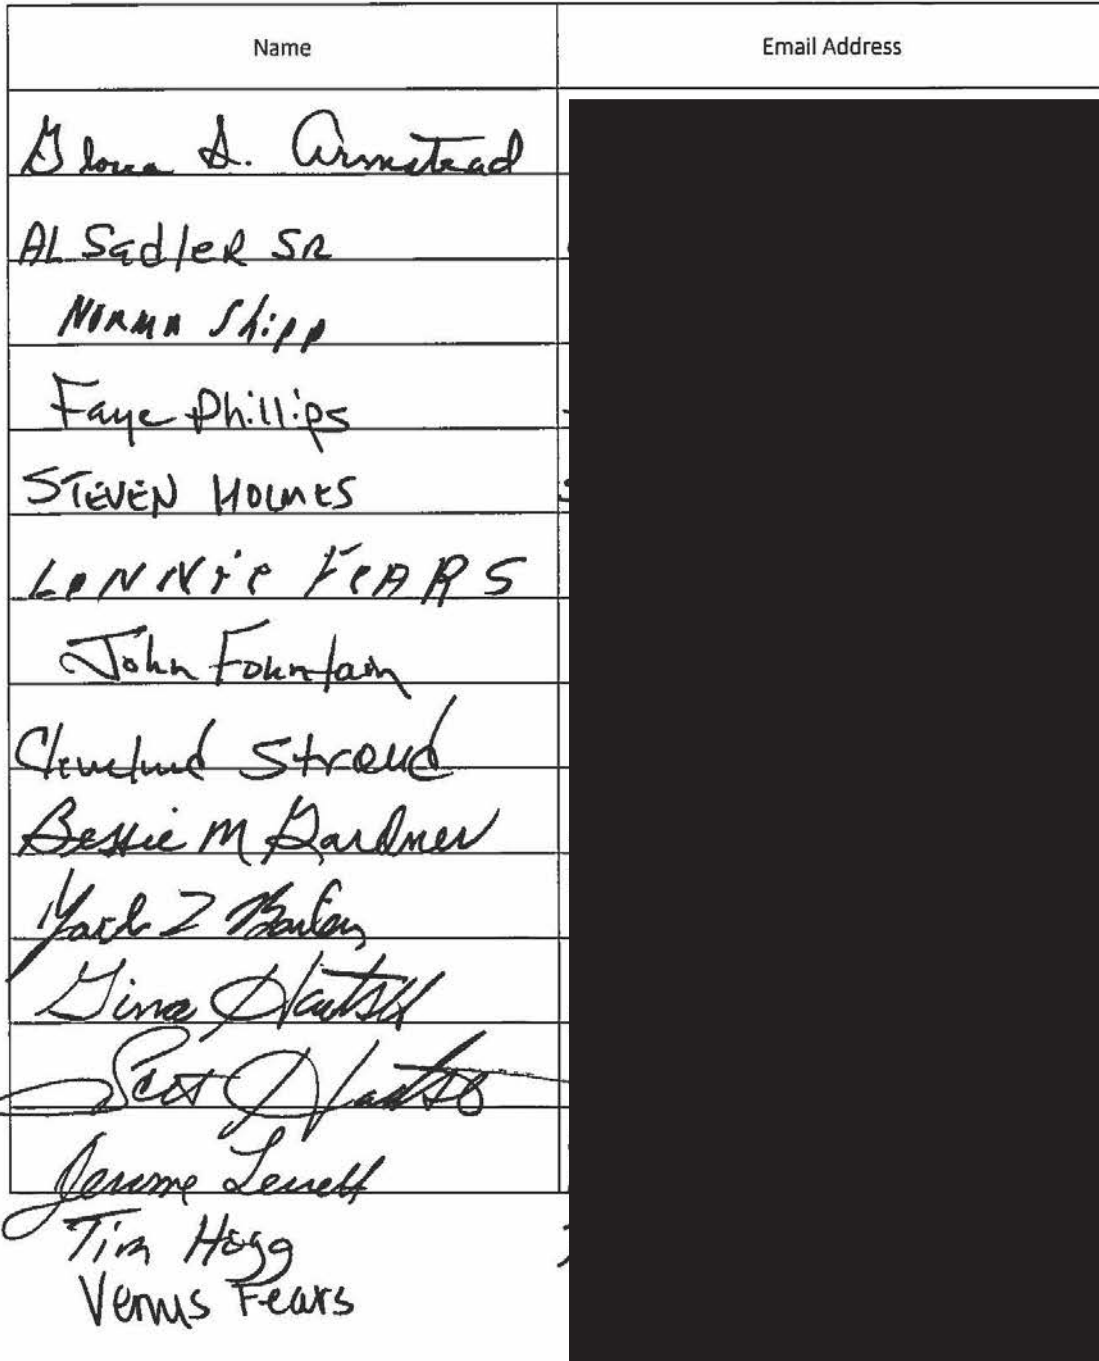 Name Email Address
Gloria S. Armstead
AL Sadler SR
NORMA Shipp
Faye Phillips
STEVEN HOLMES
LONNiE FEARS
John Fountain
Cleveland Stroud
Bessie M Gardner
Z
Gina Hartsell
Scott
Jerome
Tim Hogg
Venus Fears